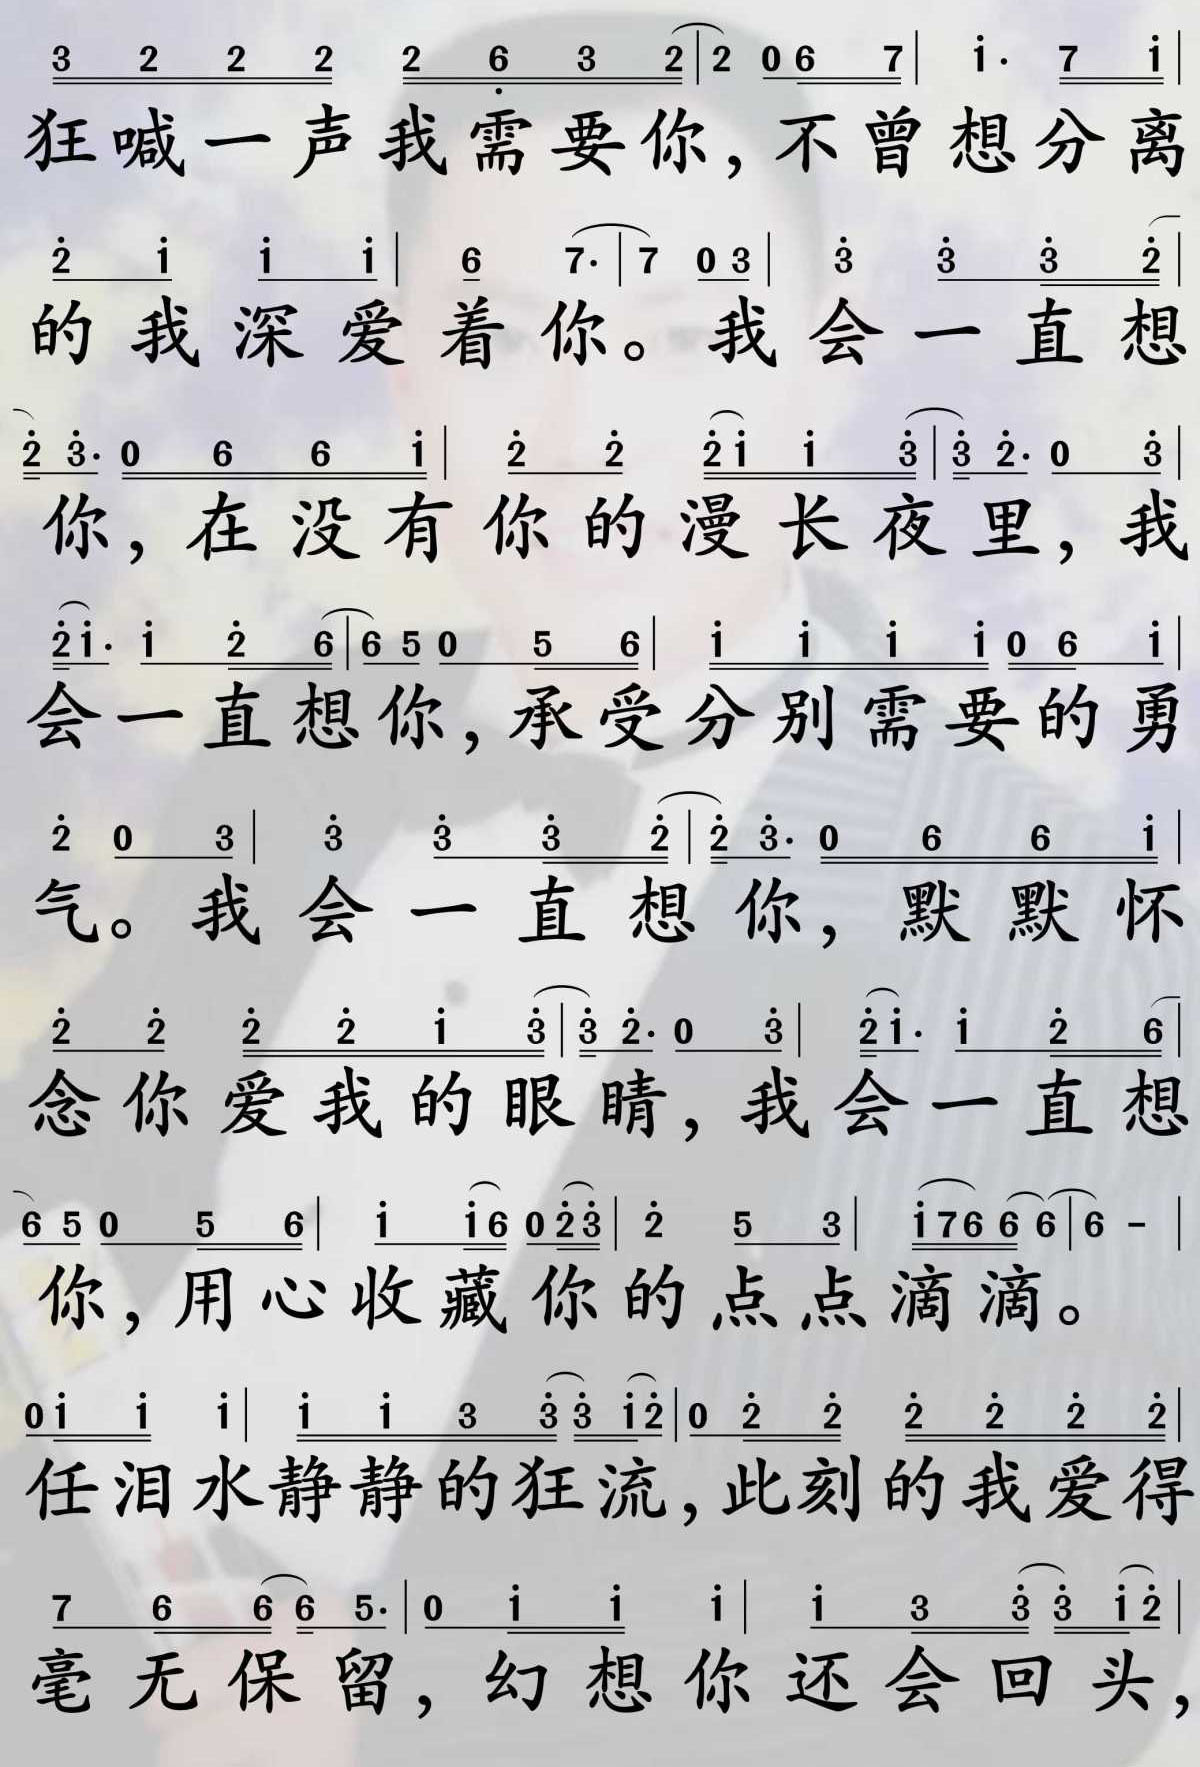 3 2 2 2 2 6 3 2 | 2 0 6 7 | i · 7 i |
狂喊一声我需要你，不曾想分离
2 i i i | 6 7· | 7 0 3 | 3 3 3 2 |
的我深爱着你。我会一直想
2 3· 0 6 6 i | 2 2 2 i i 3 | 3 2· 0 3 |
你，在没有你的漫长夜里，我
2 i· i 2 6 | 6 5 0 5 6 | i i i i 0 6 i |
会一直想你，承受分别需要的勇
2 0 3 | 3 3 3 2 | 2 3· 0 6 6 i |
气。我会一直想你，默默怀
2 2 2 2 i 3 | 3 2· 0 3 | 2 i· i 2 6 |
念你爱我的眼睛，我会一直想
6 5 0 5 6 | i i 6 0 2 3 | 2 5 3 | i 7 6 6 6 | 6 - |
你，用心收藏你的点点滴滴。
0 i i i | i i 3 3 3 i 2 | 0 2 2 2 2 2 2 |
任泪水静静的狂流，此刻的我爱得
7 6 6 6 5· | 0 i i i | i 3 3 3 i 2 |
毫无保留，幻想你还会回头，